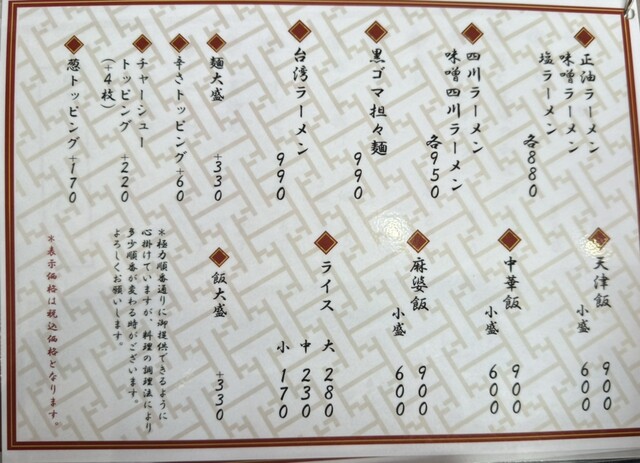 正油ラーメン
味噌ラーメン
塩ラーメン
各880
四川ラーメン
味噌四川ラーメン
各950
黒ゴマ担々麺
990
台湾ラーメン
990
麺大盛
+330
辛さトッピング+60
チャーシュー
トッピング +220
(+4枚)
葱トッピング+170
天津飯 900
小盛 600
中華飯 900
小盛 600
麻婆飯 900
小盛 600
ライス 大 280
中 230
小 170
飯大盛 +330
※極力順番通りに御提供できるように
心掛けていますが、料理の調理法により
多少順番が変わる時がございます。
よろしくお願いします。
※表示価格は税込価格となります。